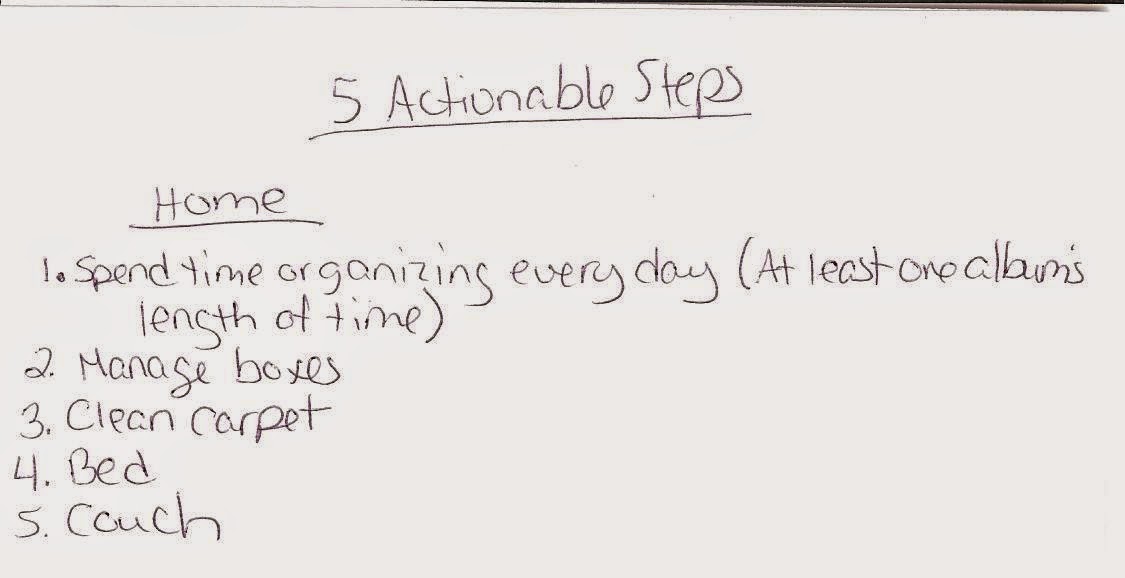 5 Actionable Steps
Home
1. Spend time organizing every day (At least one album's
length of time)
2. Manage boxes
3. Clean carpet
4. Bed
5. Couch